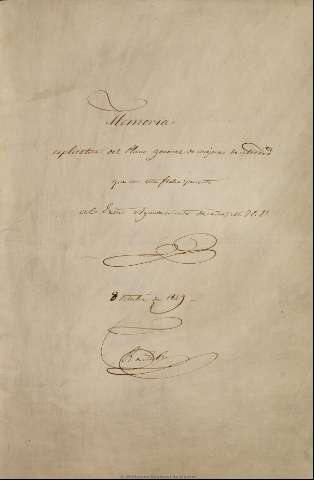 Memoria
esplicativa del Plano general de mejoras de Madrid
que con esta fecha presenta
al Excmo Ayuntamiento de
Octubre de 1849
Biblioteca Nacional de España